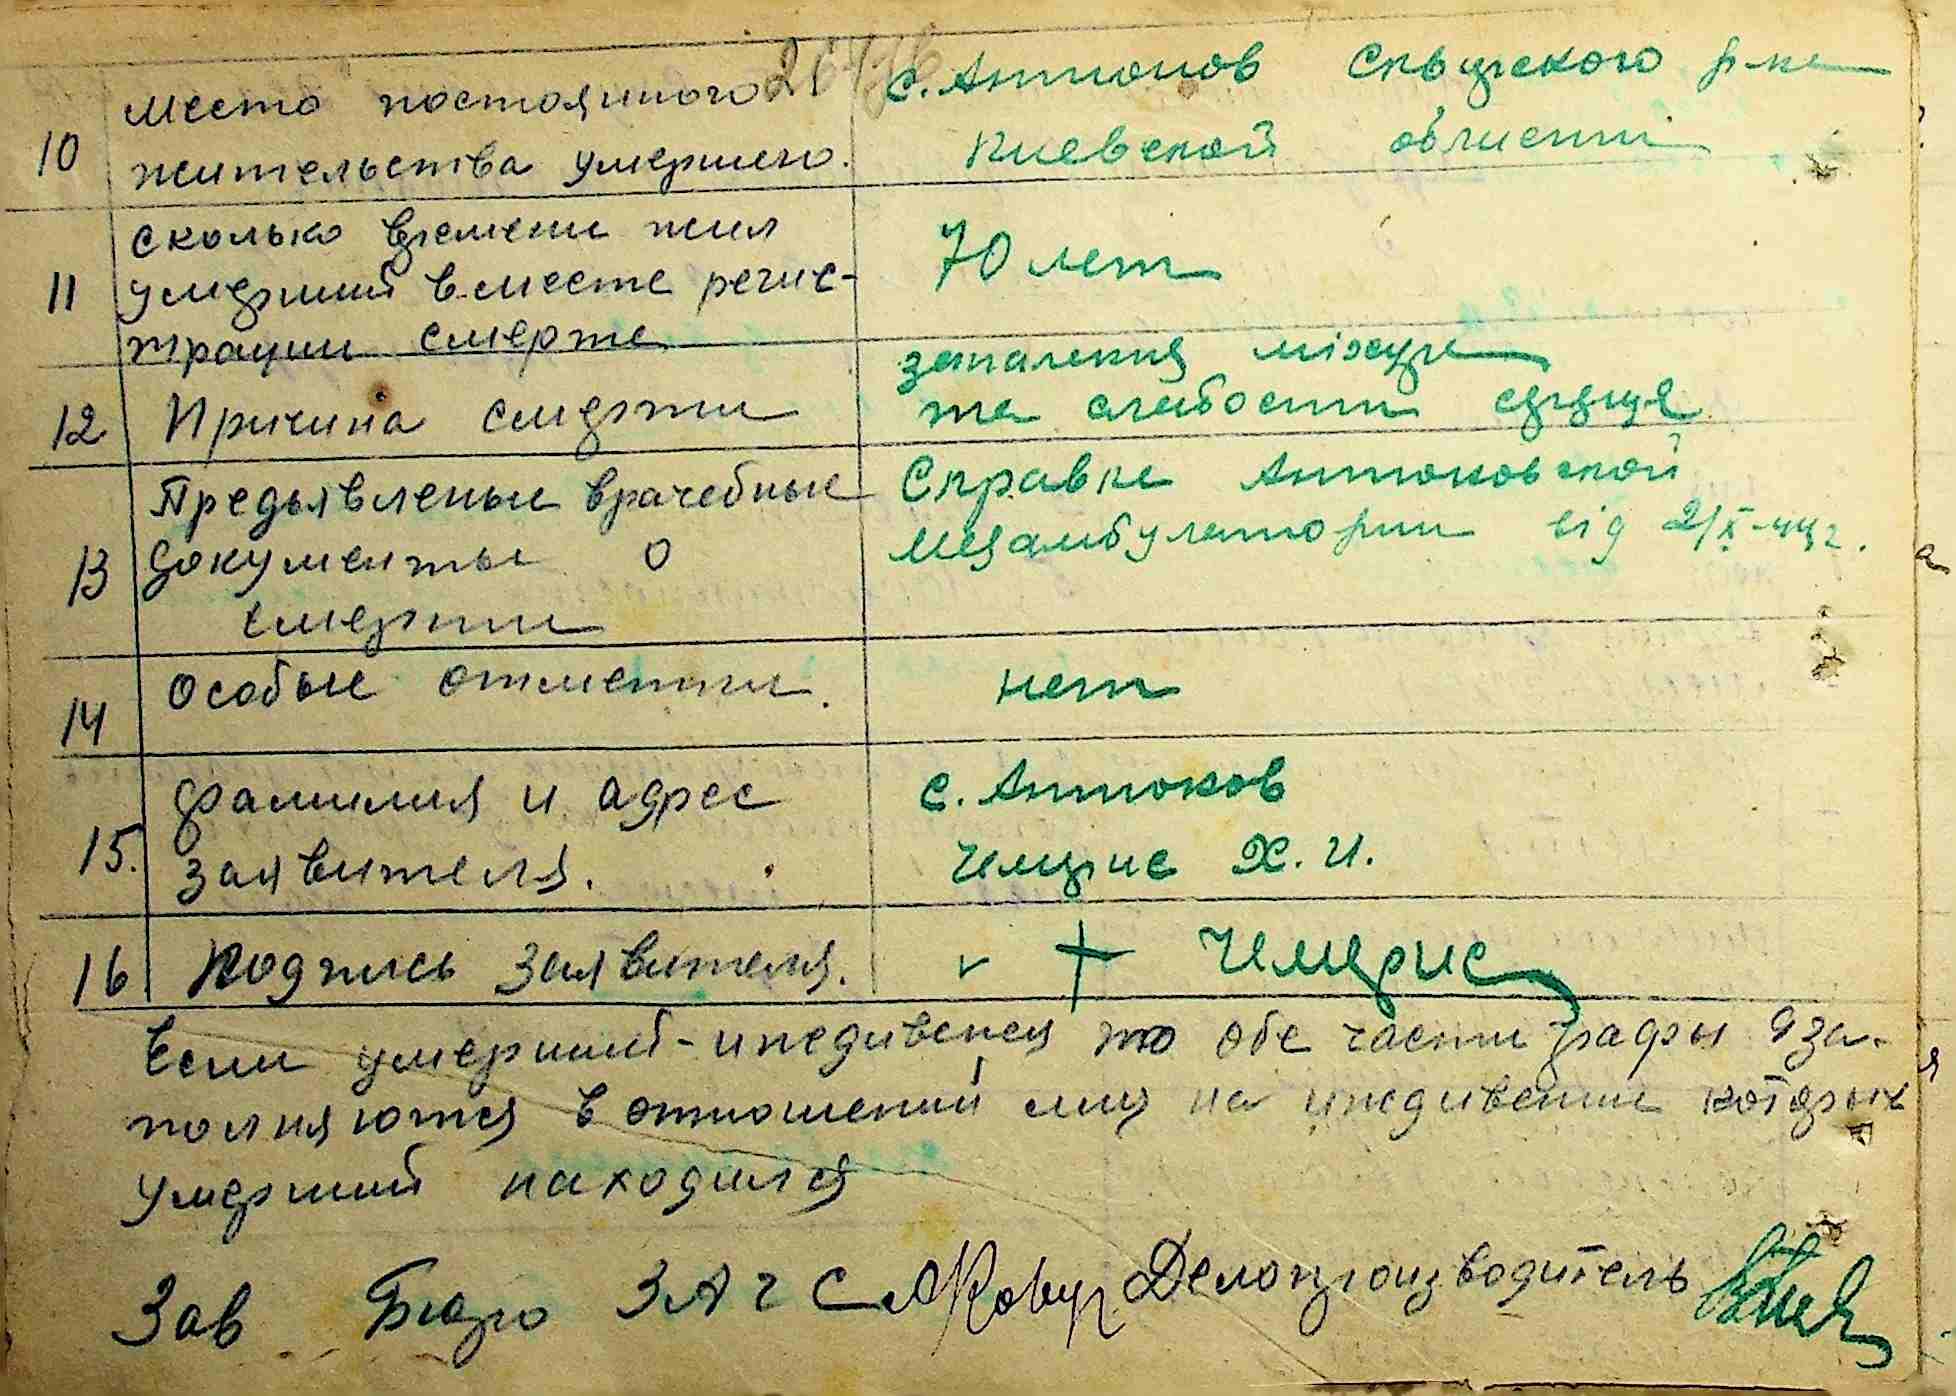 10 Место постоянного с. Антонов Сквирского р-на
жительства умершего. Киевской области
сколько времени жил
11 умерший в месте регис- 70 лет
трации смерте
запалення міхура
12 Причина смерти та слабости серця
Предьявленые врачебные Справка Антоновской
13 документы о Медамбулатории від 2/X-44 г.
смерти
14 Особые отметки. нет
фамилия и адрес с. Антонов
15. заявителя. Чемерис Х. И.
16 Подпись заявителя. + Чемерис
Если умерший-иждивенец то обе части графы 9 за-
полняются в отношении лиц на иждивении которых
умерший находился
Зав Бюро ЗАГС Делопроизводитель